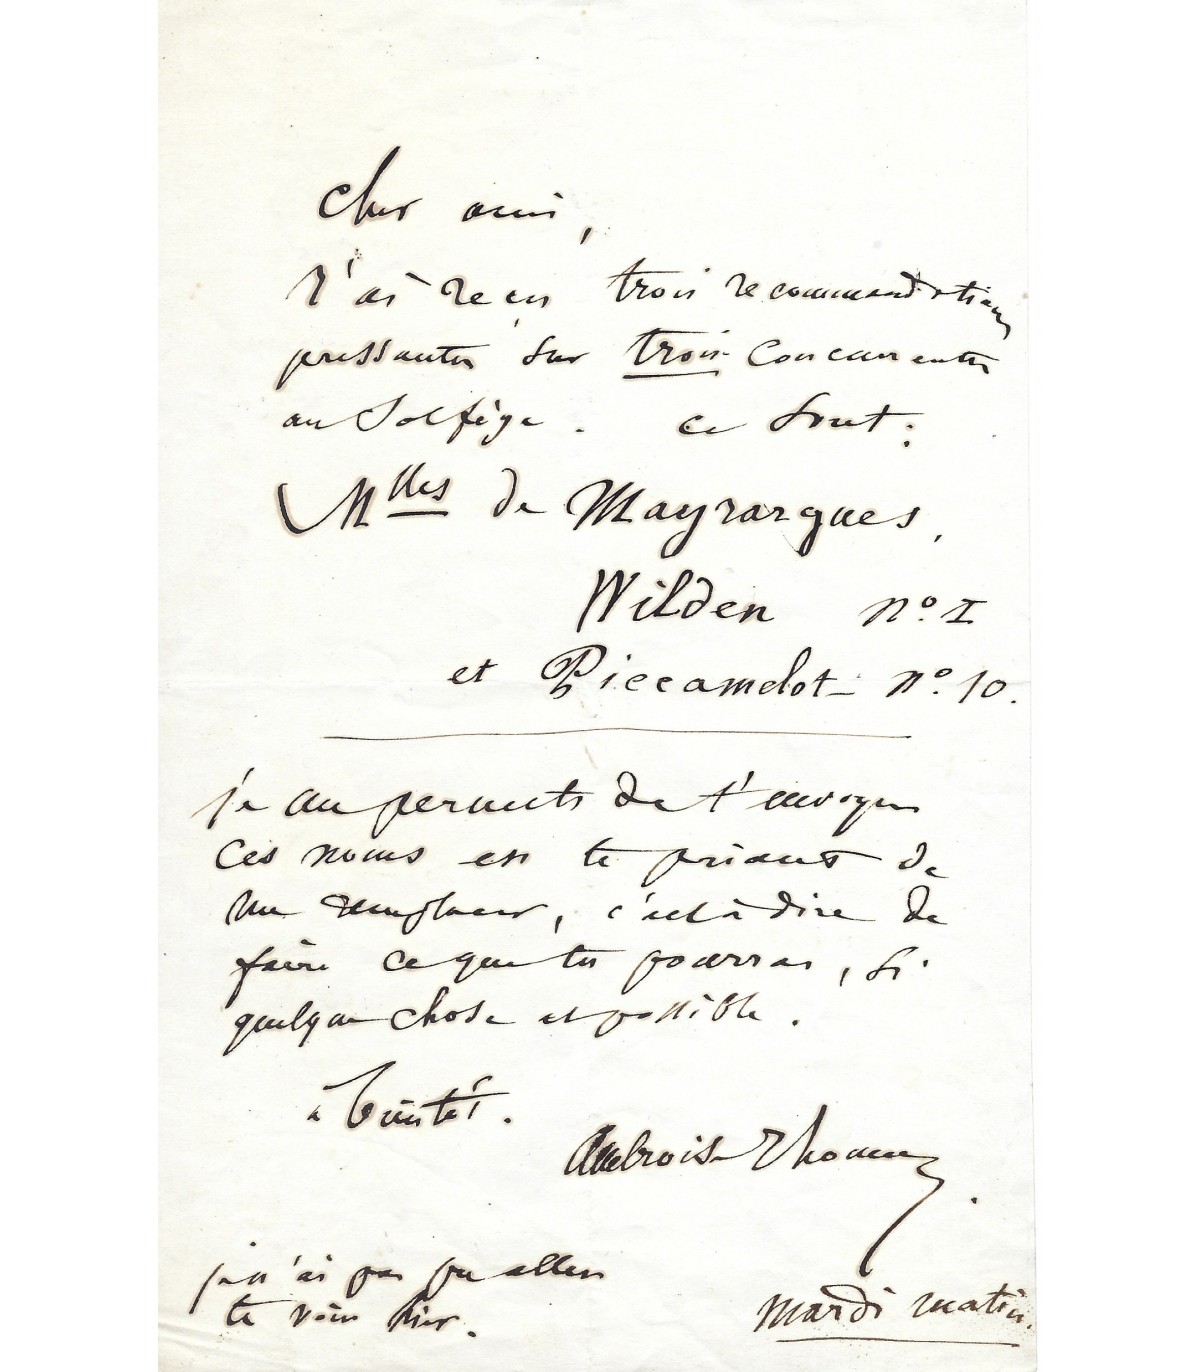 Cher ami,
J'ai reçu trois recommandations
pressantes sur trois concurrentes
au Solfège. ce sont:
Mlles de Mayrargues,
Wilden no. I
et Piccamelot no. 10.
je me permets de t'envoyer
ces noms en te priant de
me remplacer, c'est à dire de
faire ce que tu pourras, si
quelque chose est possible.
à bientôt.
Ambroise Thomas
je n'ai pas pu aller
te voir hier.
mardi matin.